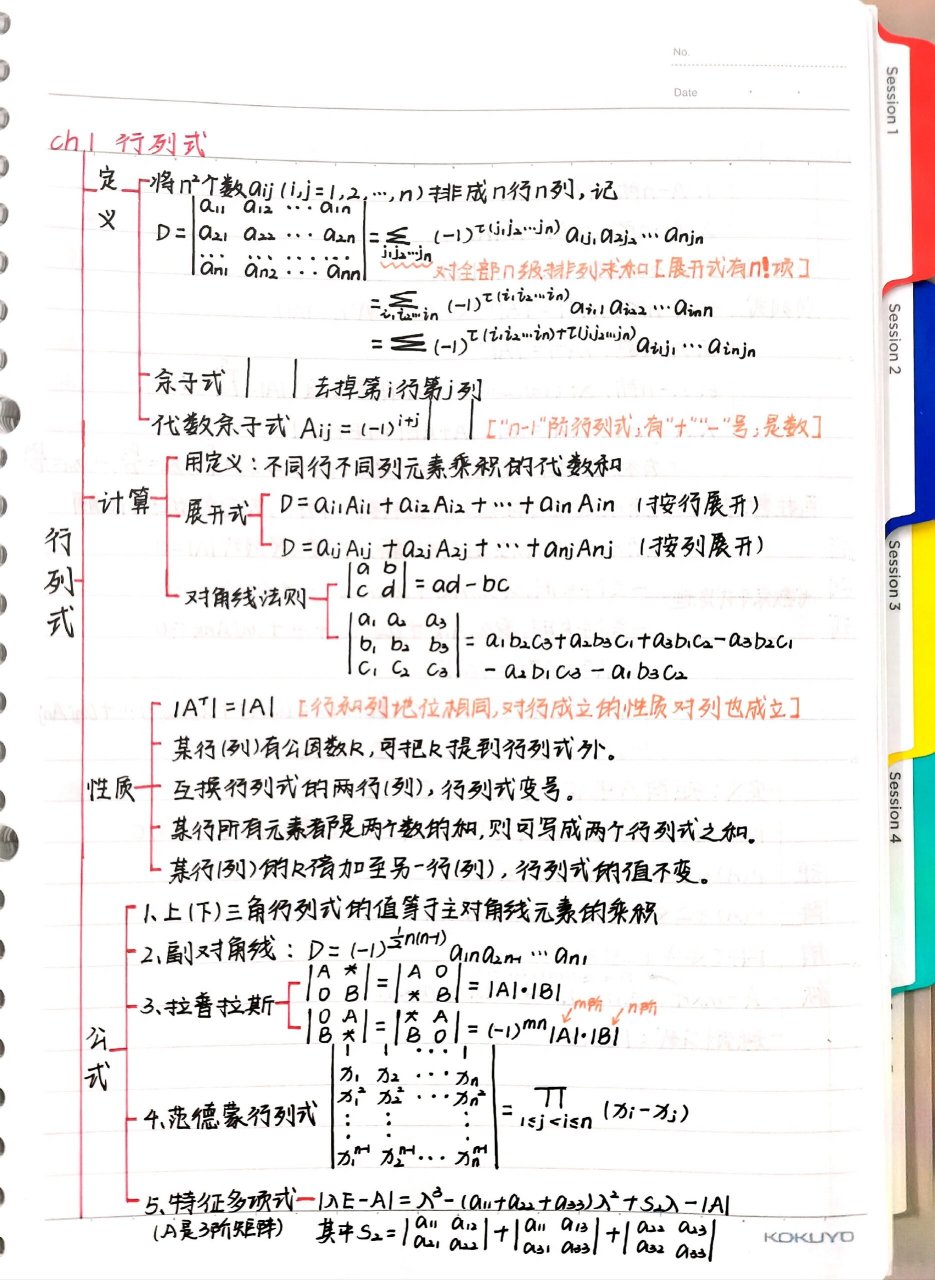 No.
Date
Session 1
Session 2
Session 3
Session 4
ch1 行列式
行列式
定义
将n²个数aij(i,j=1,2,…,n)排成n行n列,记
D = |a11 a12 … a1n; a21 a22 … a2n; … … … …; an1 an2 … ann| = Σ_{j1j2…jn} (-1)^{τ(j1j2…jn)} a1j1 a2j2 … anjn
对全部n级排列求和[展开式有n!项]
= Σ_{i1i2…in} (-1)^{τ(i1i2…in)} ai11 ai22 … ainn
= Σ (-1)^{τ(i1i2…in)+τ(j1j2…jn)} ai1j1 … ainjn
余子式 | | 去掉第i行第j列
代数余子式 Aij = (-1)^{i+j} | | ["n-1"阶行列式;有"+""-"号;是数]
计算
用定义:不同行不同列元素乘积的代数和
展开式
D = ai1Ai1 + ai2Ai2 + … + ainAin (按行展开)
D = a1jA1j + a2jA2j + … + anjAnj (按列展开)
对角线法则
|a b; c d| = ad - bc
|a1 a2 a3; b1 b2 b3; c1 c2 c3| = a1b2c3 + a2b3c1 + a3b1c2 - a3b2c1
- a2b1c3 - a1b3c2
性质
|A^T| = |A| [行和列地位相同,对行成立的性质对列也成立]
某行(列)有公因数k,可把k提到行列式外。
互换行列式的两行(列),行列式变号。
某行所有元素都是两个数的和,则可写成两个行列式之和。
某行(列)的k倍加至另一行(列),行列式的值不变。
公式
1、上(下)三角行列式的值等于主对角线元素的乘积
2、副对角线: D = (-1)^{½n(n-1)} a1n a2n-1 … an1
3、拉普拉斯
|A *; O B| = |A O; * B| = |A|·|B|
m阶 n阶
|O A; B *| = |* A; B O| = (-1)^{mn} |A|·|B|
4、范德蒙行列式 |1 1 … 1; x1 x2 … xn; x1² x2² … xn²; ⋮ ⋮ ⋮; x1^{n-1} x2^{n-1} … xn^{n-1}| = ∏_{1≤j<i≤n} (xi - xj)
5、特征多项式 — |λE-A| = λ³ - (a11+a22+a33)λ² + S2λ - |A|
(A是3阶矩阵) 其中 S2 = |a11 a12; a21 a22| + |a11 a13; a31 a33| + |a22 a23; a32 a33|
KOKUYO